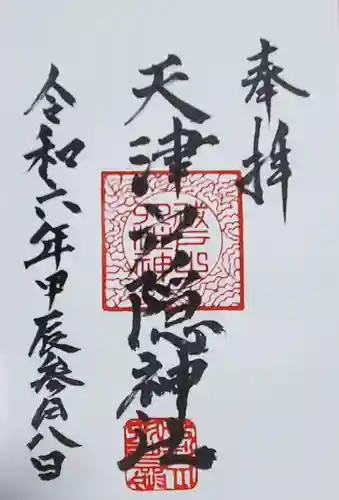 奉拝
天津之隠神社
令和六年甲辰参月八日